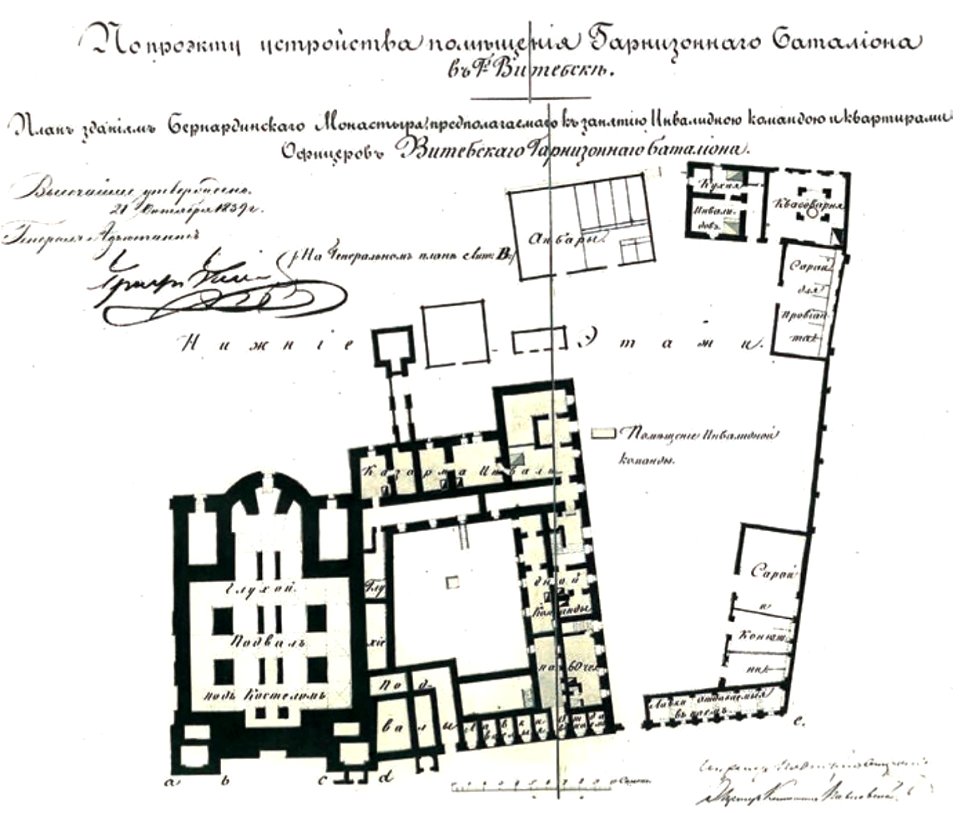 По проэкту устройства помѣщенія Гарнизоннаго Баталіона
въ Г. Витебскѣ.
Планъ зданіямъ Бернардинскаго Монастыря, предполагаемаго къ занятію Инвалидною командою и квартирами
Офицеровъ Витебскаго Гарнизоннаго баталіона.
Высочайше утвержденъ.
21 Октября 1839 г.
Генералъ Адъютантъ
На Генеральномъ планѣ Лит. В.
Анбары.
Кухня
Инвали-
довъ.
Квасоварня
Сарай
для
Провіан-
та
Нижніе Этажи.
Помѣщеніе Инвалидной
команды.
Казарма Инвали-
дной
Команды
на 60 чел.
Глухой
Подвалъ
подъ Костеломъ
Глу
хіе
Под-
валы
Сарай
и
Конюш
ни
Лавки отдаваемыя
въ наемъ
a b c d e.
Сажен.